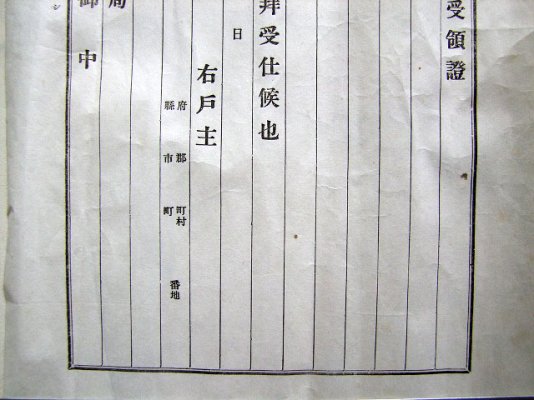 受領證
拜受仕候也
日
右戶主
府縣 郡市 町村町 番地
局
御中